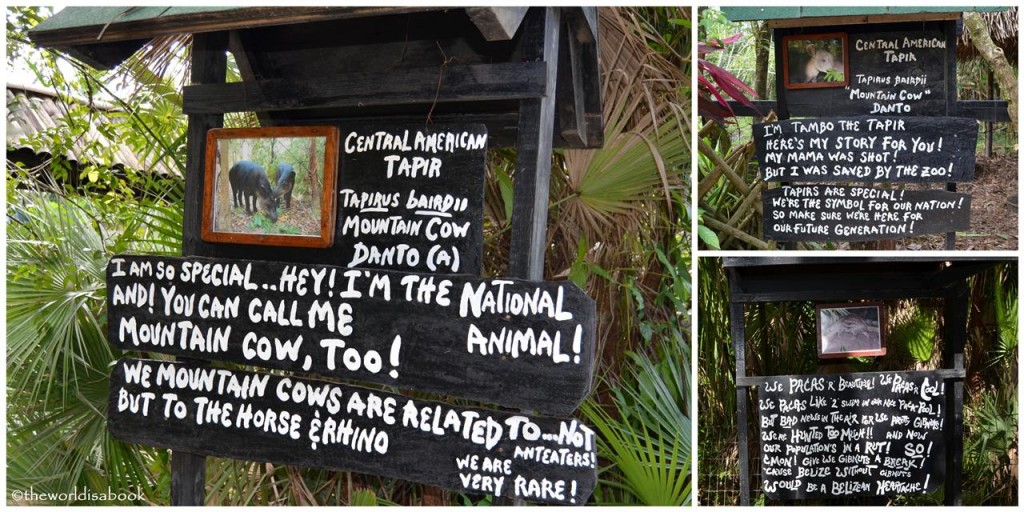 CENTRAL AMERICAN
TAPIR
TAPIRUS bAIRDII
MOUNTAIN COW
DANTO (A)
I AM SO SPECIAL.. HEY! I'M THE NATIONAL
AND! YOU CAN CALL ME ANIMAL!
MOUNTAIN COW, TOO!
WE MOUNTAIN COWS ARE RELATED TO...NOT
BUT TO THE HORSE & RHINO ANTEATERS!
WE ARE
VERY RARE!
©theworldisabook
CENTRAL AMERICAN
TAPIR
TAPIRUS bAIRDII
"MOUNTAIN COW"
DANTO
I'M TAMBO THE TAPIR
HERE'S MY STORY FOR YOU!
MY MAMA WAS SHOT!
BUT I WAS SAVED BY THE ZOO!
TAPIRS ARE SPECIAL!
WE'RE THE SYMBOL FOR OUR NATION!
SO MAKE SURE WE'RE HERE FOR
OUR FUTURE GENERATION!
WE PACAS 'R' BEAUTIFUL! WE PACAS R COOL!
WE PACAS LIKE '2' SWIM IN OUR NICE PACA-POOL!
BUT BAD NEWS IN THE AIR FOR WE GIBNUTS!
WE'RE HUNTED TOO MUCH!! AND NOW
OUR POPULATION'S IN A RUT! SO!
C'MON! GIVE WE GIBNUTS A BREAK!
'CAUSE BELIZE WITHOUT GIBNUTS
WOULD BE A BELIZEAN HEARTACHE!